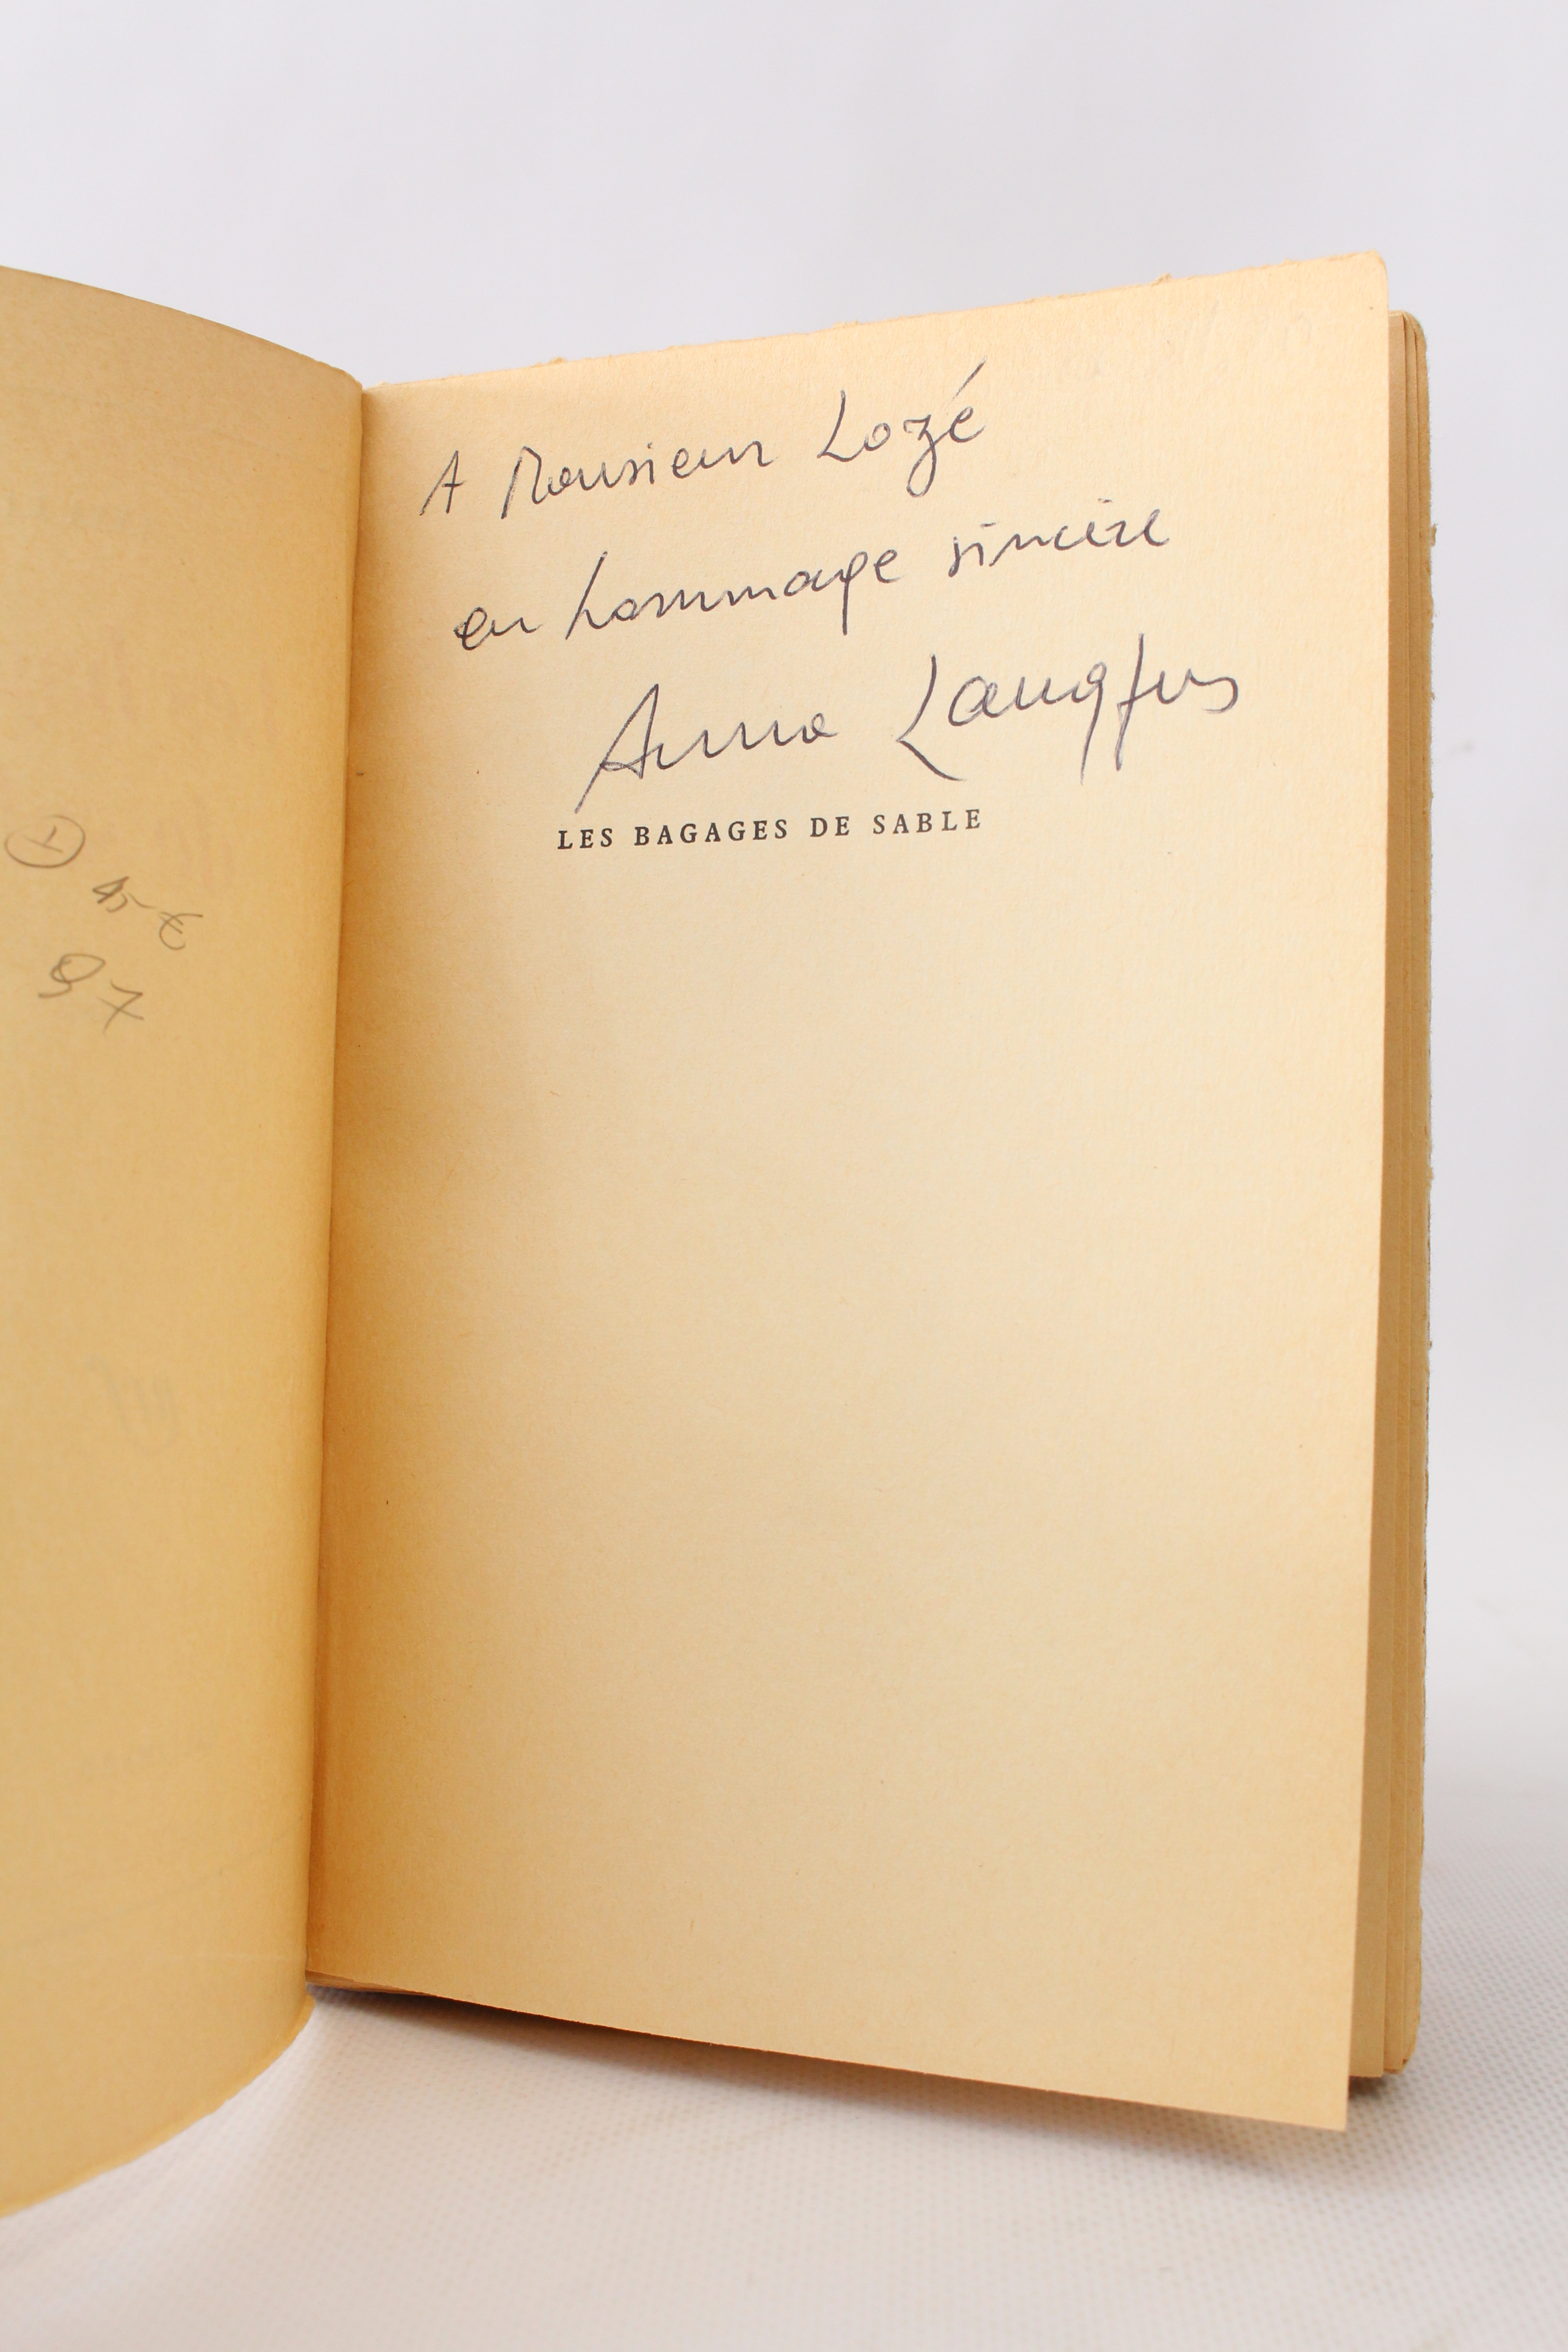 45 €
97
A Monsieur Lozé
en hommage sincère
Anna Langfus
LES BAGAGES DE SABLE